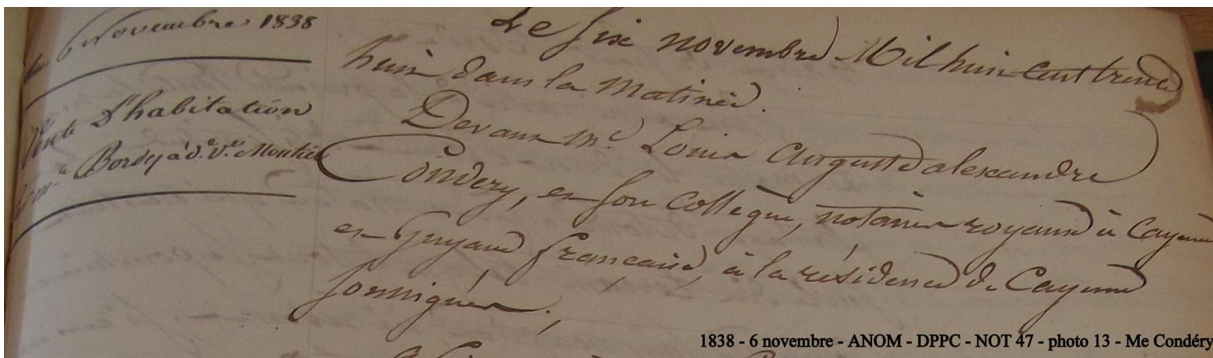 6 Novembre 1838
Vente d'habitation
Bordy à d.e v.e Moutié
Le six novembre Mil huit cent trente
huit dans la Matinée.
Devant M.e Louis Auguste alexandre
Condery, et son collègue, notaires royaux à Cayenne
en Guyane française, à la résidence de Cayenne
soussignés;
1838 - 6 novembre - ANOM - DPPC - NOT 47 - photo 13 - Me Condéry